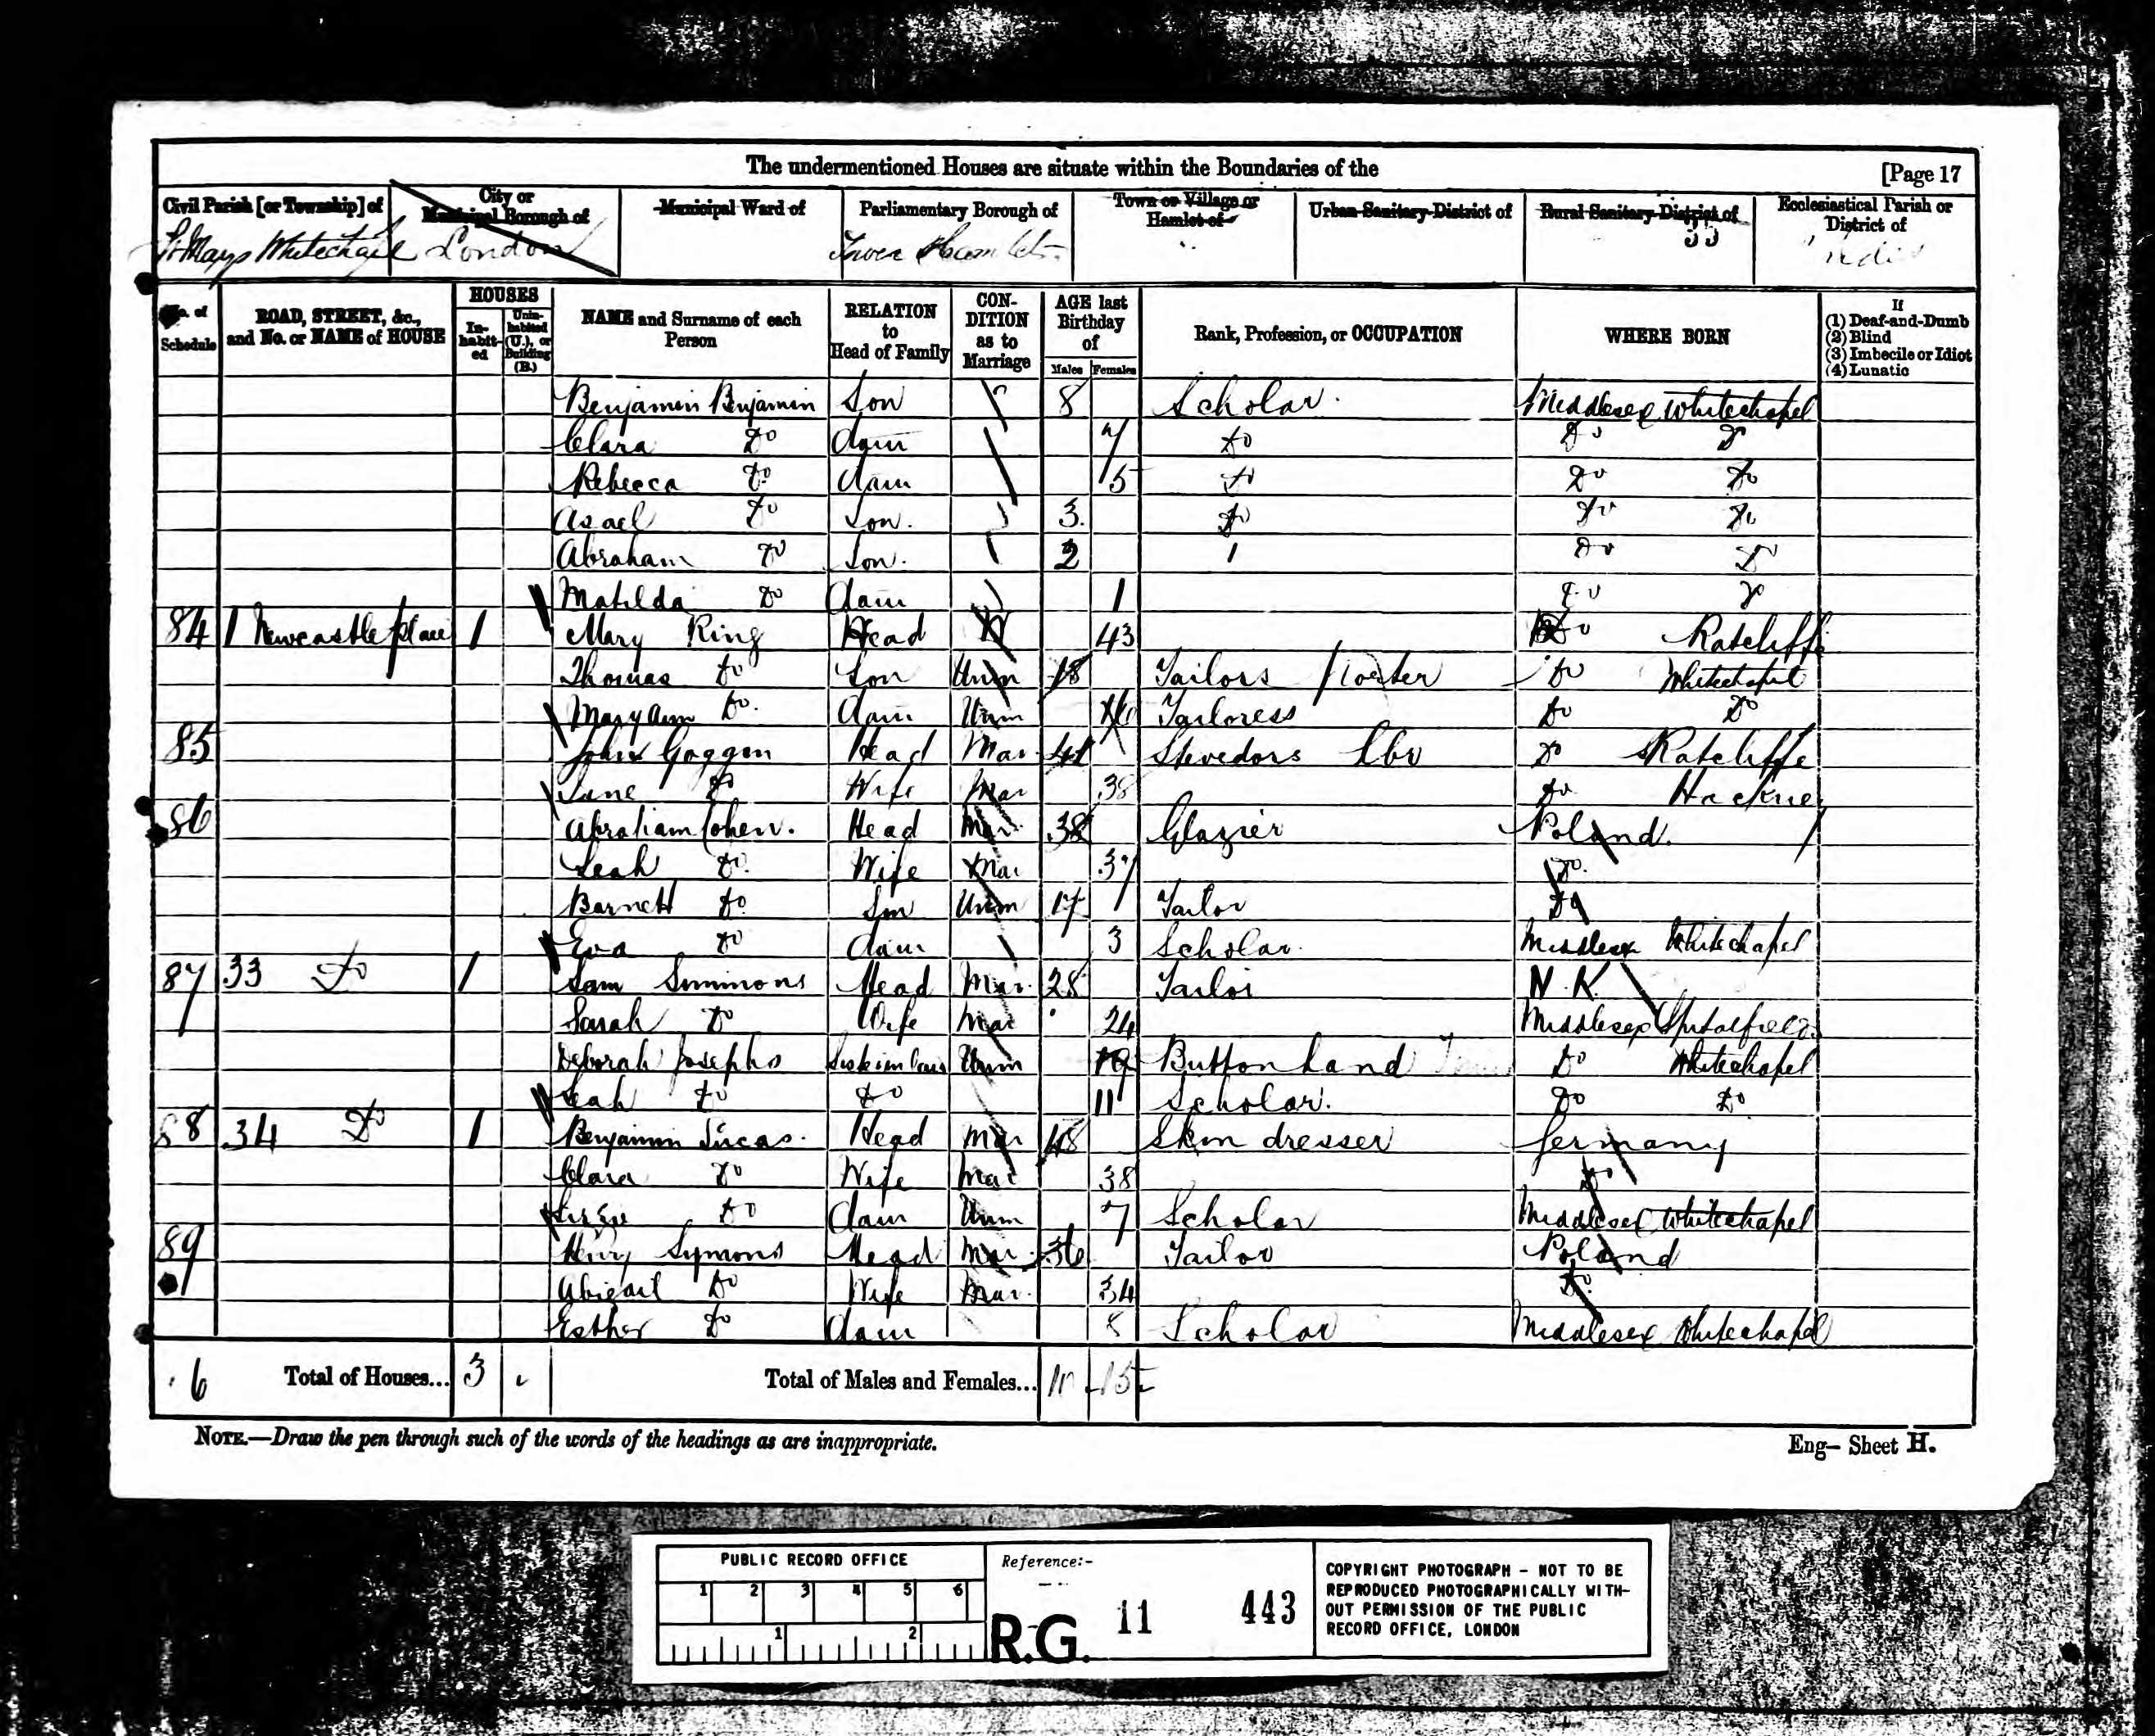 The undermentioned Houses are situate within the Boundaries of the [Page 17
Civil Parish [or Township] of
City or Municipal Borough of
Municipal Ward of
Parliamentary Borough of
Town or Village or Hamlet of
Urban Sanitary District of
Rural Sanitary District of
Ecclesiastical Parish or District of
St Marys Whitechapel London Tower Hamlets
No. of Schedule
ROAD, STREET, &c., and No. or NAME of HOUSE
HOUSES
In-habit-ed
Unin-habited (U.), or Building (B.)
NAME and Surname of each Person
RELATION to Head of Family
CON-DITION as to Marriage
AGE last Birthday of
Males Females
Rank, Profession, or OCCUPATION
WHERE BORN
If
(1) Deaf-and-Dumb
(2) Blind
(3) Imbecile or Idiot
(4) Lunatic
Benjamin Benjamin Son 8 Scholar Middlesex Whitechapel
Clara Do Daur 7 Do Do Do
Rebecca Do Daur 5 Do Do Do
Asael Do Son 3 Do Do Do
Abraham Do Son 2 Do Do
Matilda Do Daur 1 Do Do
84 1 Newcastle place 1 Mary Ring Head W 43 Do Ratcliffe
Thomas Do Son Unm 18 Tailors Porter Do Whitechapel
Mary Ann Do Daur Unm 16 Tailoress Do Do
85 John Goggin Head Mar 41 Stevedors Lbr Do Ratcliffe
Jane Do Wife Mar 38 Do Hackney
86 Abraham Cohen Head Mar 38 Glazier Poland
Leah Do Wife Mar 37 Do
Barnett Do Son Unm 17 Tailor Do
Eva Do Daur 3 Scholar Middlesex Whitechapel
87 33 Do 1 Sam Simmons Head Mar 28 Tailor N.K.
Sarah Do Wife Mar 24 Middlesex Spitalfields
Deborah Josephs Sister in law Unm 19 Button hand Do Whitechapel
Leah Do Do 11 Scholar Do Do
88 34 Do 1 Benjamin Lucas Head Mar 48 Skin dresser Germany
Clara Do Wife Mar 38 Do
Do Daur Unm 7 Scholar Middlesex Whitechapel
89 Henry Symons Head Mar 36 Tailor Poland
Abigail Do Wife Mar 34 Do
Esther Do Daur 8 Scholar Middlesex Whitechapel
6 Total of Houses... 3 Total of Males and Females... 10 15
NOTE.—Draw the pen through such of the words of the headings as are inappropriate.
Eng- Sheet H.
PUBLIC RECORD OFFICE
1 2 3 4 5 6
1 2
Reference:-
R.G. 11 443
COPYRIGHT PHOTOGRAPH - NOT TO BE
REPRODUCED PHOTOGRAPHICALLY WITH-
OUT PERMISSION OF THE PUBLIC
RECORD OFFICE, LONDON